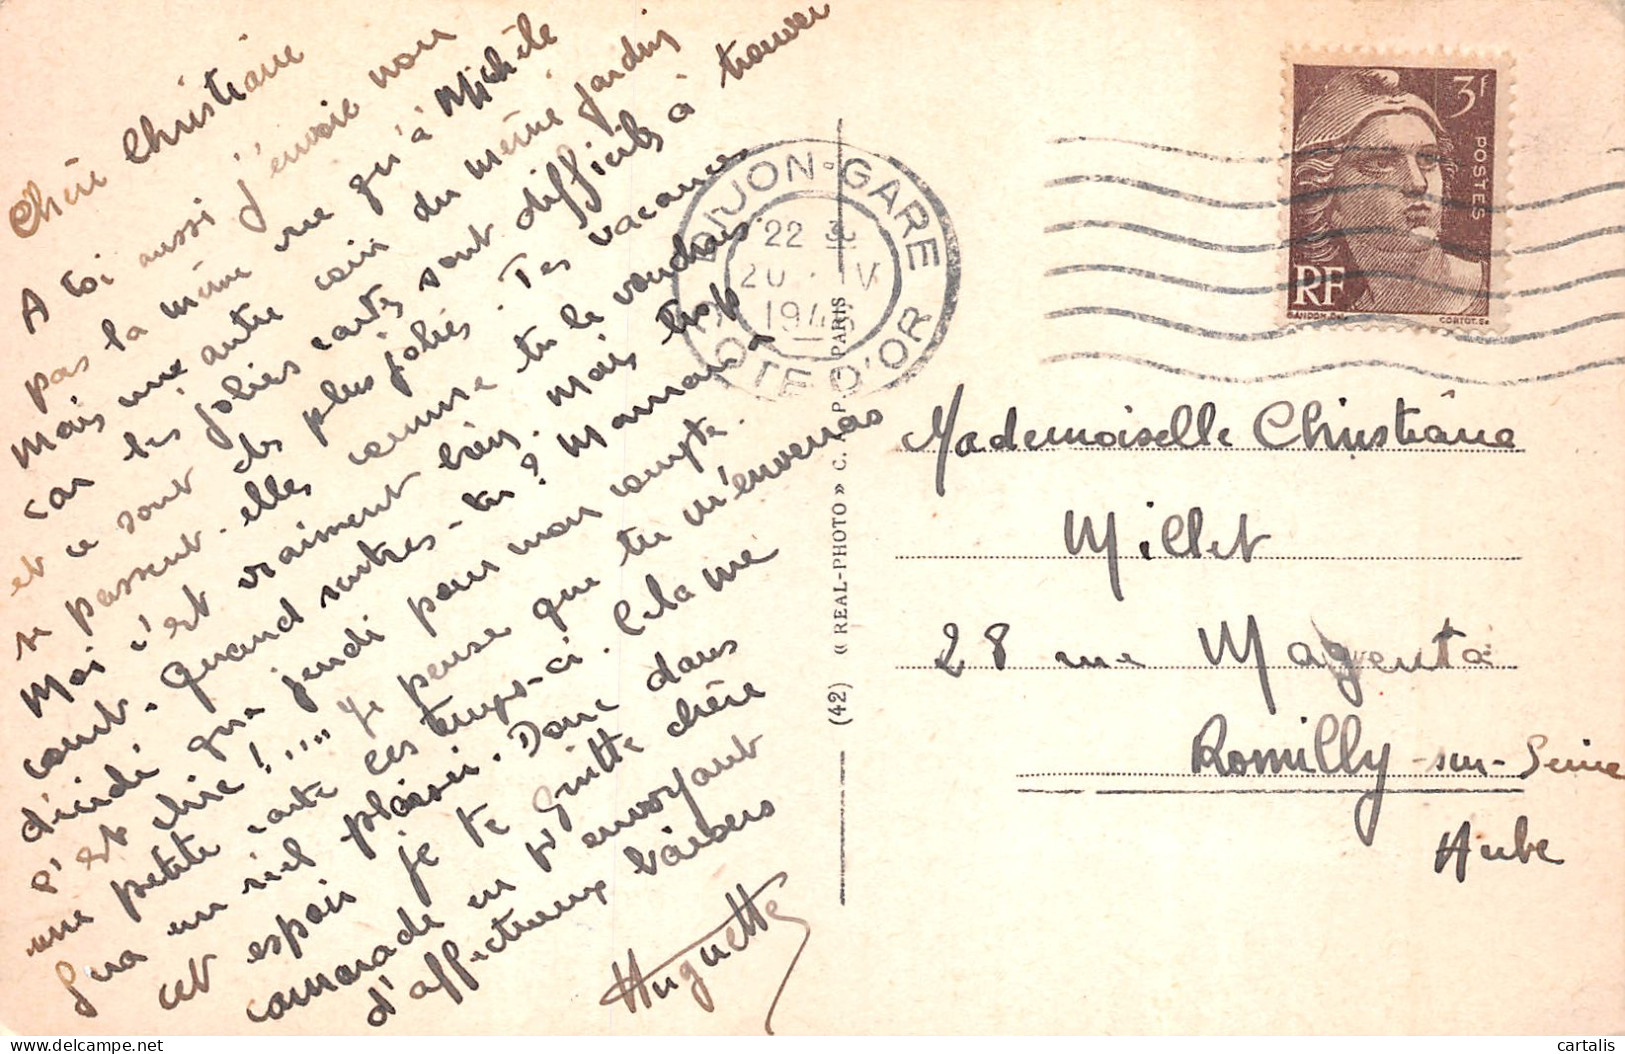 Chère Christiane
A toi aussi j'envoie non
pas la même vue qu'à Michèle
Mais une autre coin du même jardin
car les jolies cartes sont difficiles à trouver
et ce sont des plus jolies. Tes vacances
se passent-elles comme tu le voudrais.
Moi c'est vraiment bien. Mais trop
court. Quand rentres-tu? Maman a
décidé que jeudi pour mon compte.
c'est chic!.... Je pense que tu m'enverras
une petite carte ces temps-ci. Cela me
fera un réel plaisir. Donc dans
cet espoir je te quitte chère
camarade en t'envoyant
d'affectueux baisers
Huguette
DIJON-GARE
22
20 IV
1946
COTE D'OR
(42) « REAL-PHOTO » C. A. P. PARIS
3f
POSTES
RF
GANDON.DEL
CORTOT.Sc
Mademoiselle Christiane
Millet
28 rue Magenta
Romilly-sur-Seine
Aube
delcampe.net
cartalis